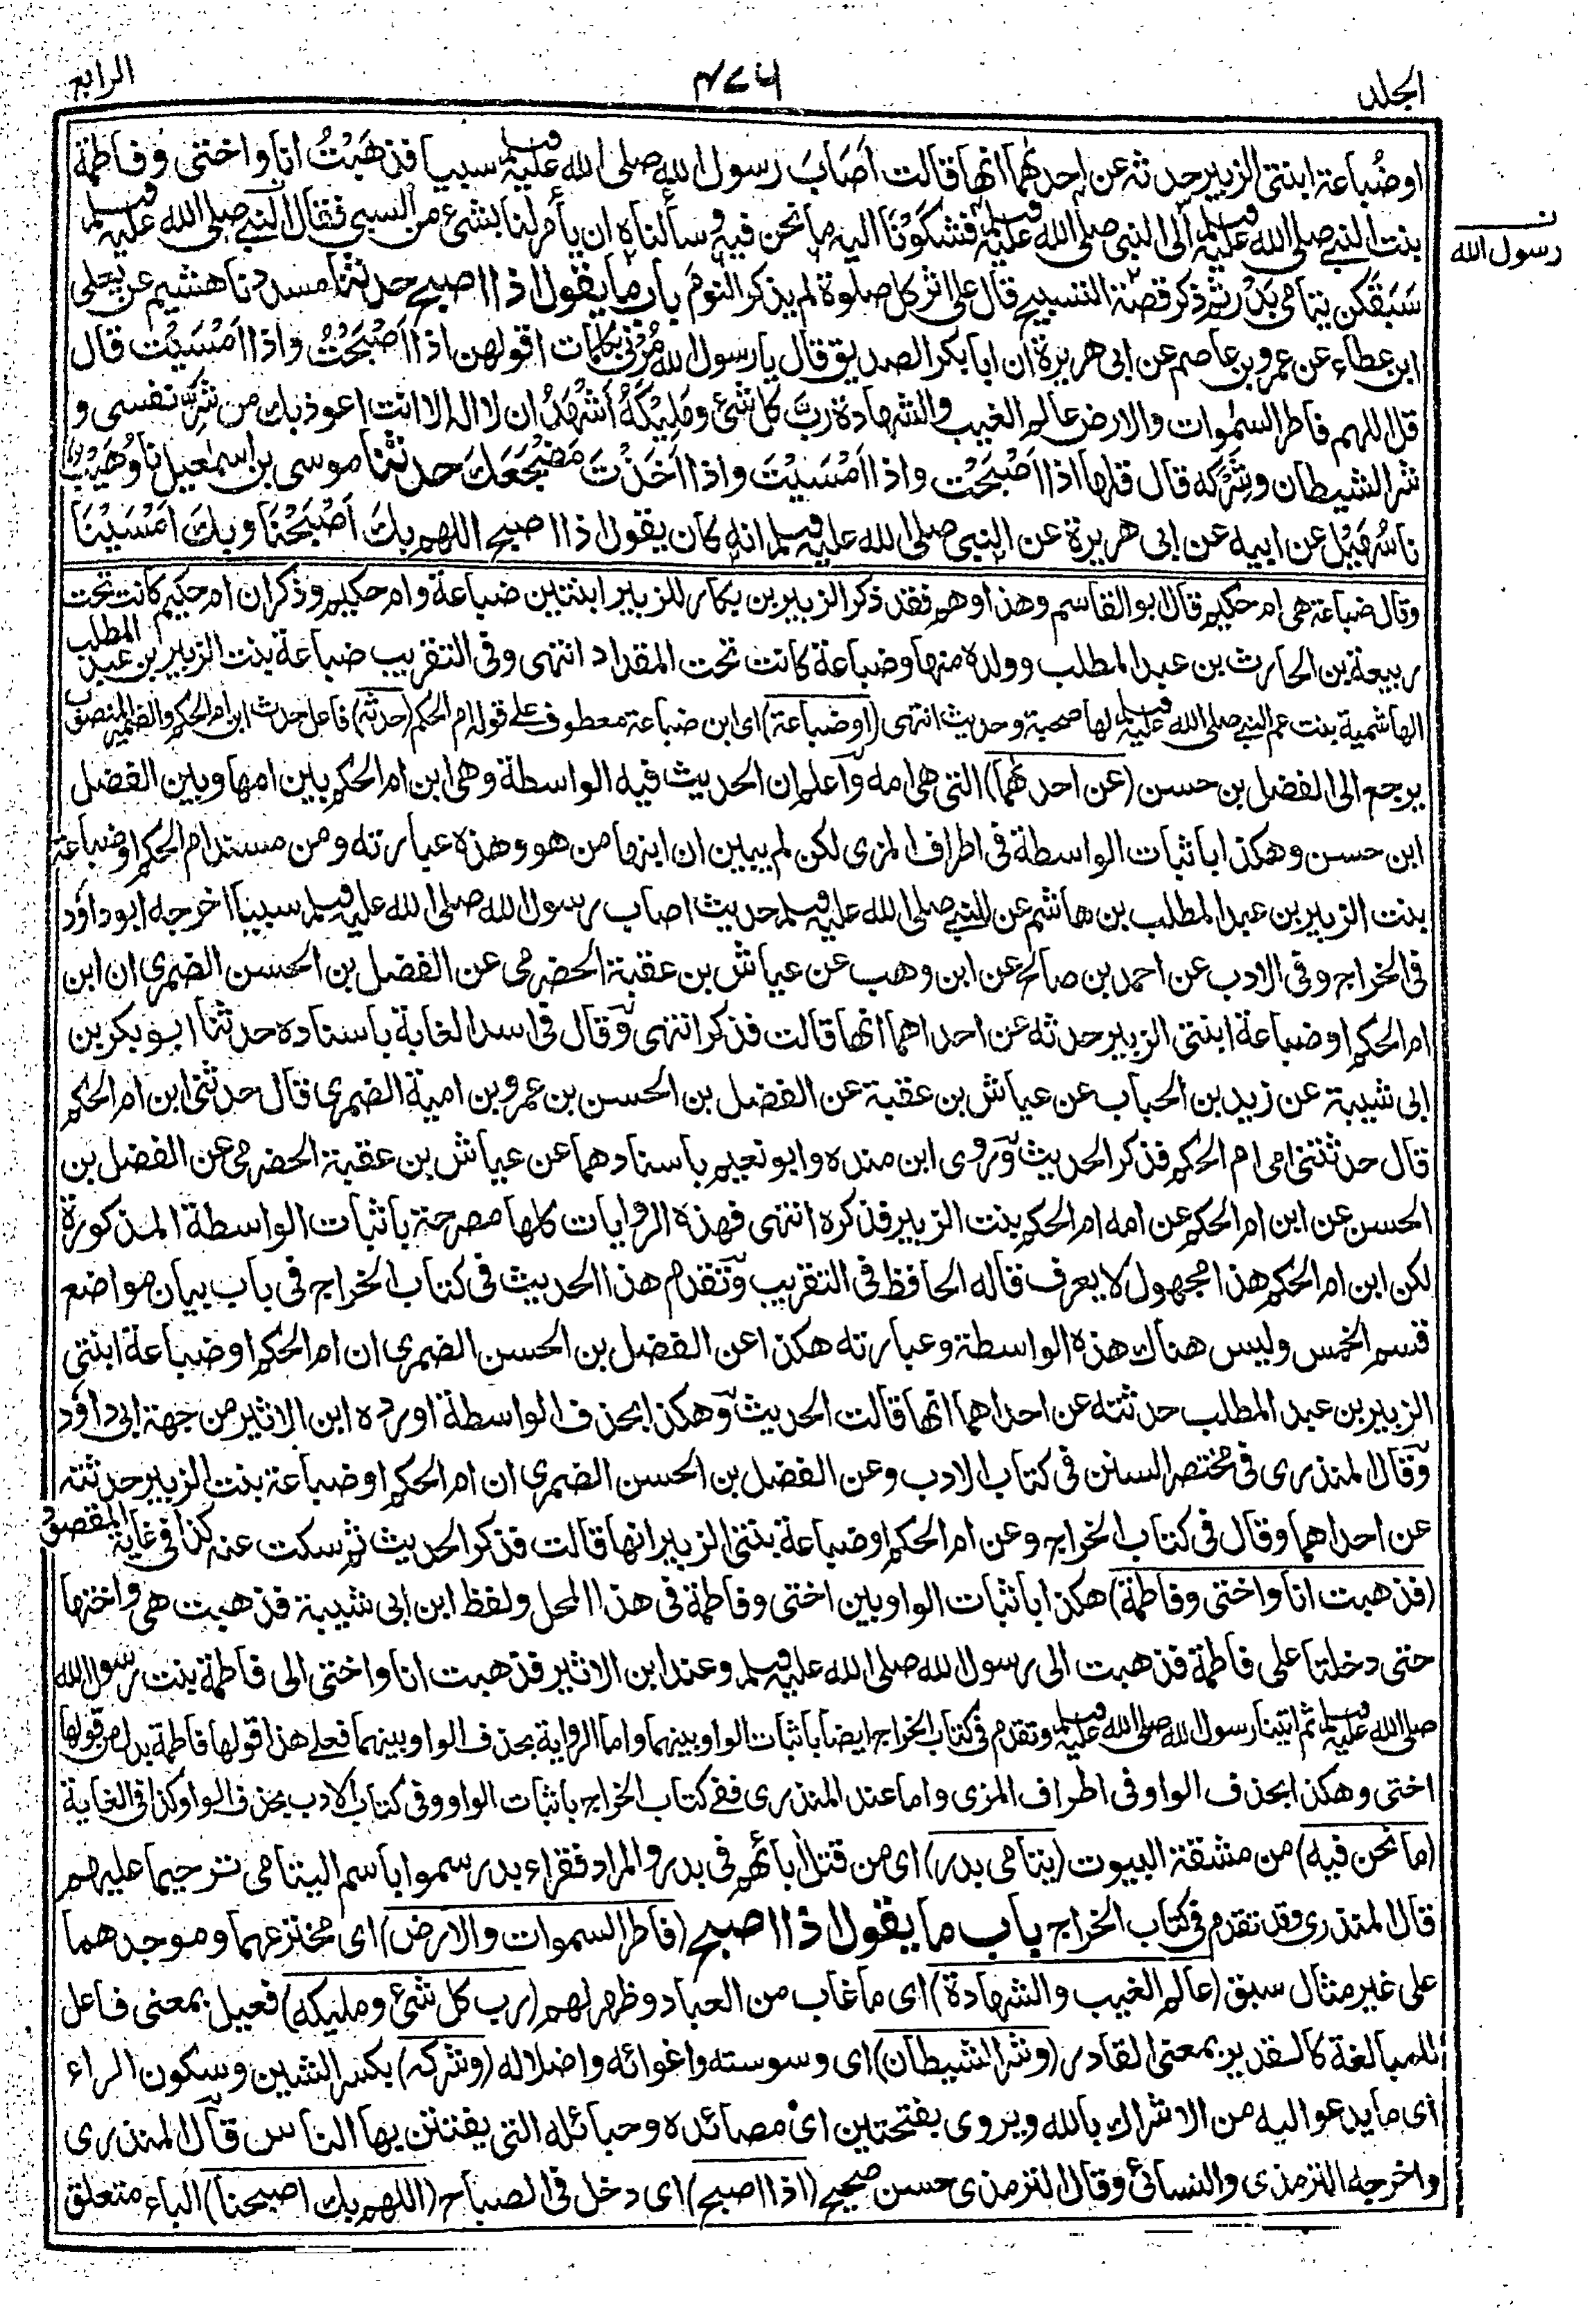 الجلد
٤٧٦
الرابع
او ضُباعة ابنتى الزبير حدثه عن احدٰهما انها قالت اَصَابَ رسول الله صلى الله عليه وسلم سبيا فذهَبْتُ انا واختى وفاطمة
بنت النبي صلى الله عليه وسلم الى النبى صلى الله عليه وسلم فشكَوْنَا اليه ما نحن فيه وسألناه ان يأمر لنا بشىء من السبى فقال النبي صلى الله عليه وسلم
رسول الله
سَبَقَكن يتامى بَدْر ثم ذكر قصة التسبيح قال على اثر كل صلوة لم يذكر النومَ باب ما يقول اذا اصبح حدثنا مسدد نا هشيم عن يعلى
ابن عطاء عن عمرو بن عاصم عن ابى هريرة ان ابا بكر الصديق قال يا رسول الله مُرْنى بكلمات اقولهن اذا اَصْبَحْتُ واذا اَمْسَيْت قال
قل اللهم فاطر السمٰوات والارض عالم الغيب والشهادة ربَّ كل شئ ومَلِيْكَهُ اَشْهَدُ ان لا اله الا انت اعوذ بك من شرِّ نفسى و
شر الشيطان وشِرْكه قال قلها اذا اَصْبَحْت واذا اَمْسَيْتَ واذا اَخَذْتَ مَضْجَعَكَ حدثنا موسى بن اسمٰعيل نا وُهَيْب
نا سُهَيْل عن ابيه عن ابى هريرة عن النبى صلى الله عليه وسلم انه كان يقول اذا اصبح اللهم بك اَصْبَحْنَا وبك اَمْسَيْنَا
وقال ضباعة هى ام حكيم قال ابو القاسم وهذا وهم فقد ذكر الزبير بن بكار للزبير ابنتين ضباعة وام حكيم وذكر ان ام حكيم كانت تحت
ربيعة بن الحارث بن عبد المطلب وولده منها وضباعة كانت تحت المقداد انتهى وفى التقريب ضباعة بنت الزبير بن عبد المطلب
الهاشمية بنت عم النبي صلى الله عليه وسلم لها صحبة وحديث انتهى (او ضباعة) اى ابن ضباعة معطوف على قوله ام الحكم (حدثه) فاعل حدث ابن ام الحكم والضمير المنصوب
يرجع الى الفضل بن حسن (عن احدٰهما) التى هى امه واعلم ان الحديث فيه الواسطة وهى ابن ام الحكم بين امها وبين الفضل
ابن حسن وهكذا باثبات الواسطة فى اطراف المزى لكن لم يبين ان ابنها من هو وهذه عبارته ومن مسند ام الحكم او ضباعة
بنت الزبير بن عبد المطلب بن هاشم عن النبي صلى الله عليه وسلم حديث اصاب رسول الله صلى الله عليه وسلم سبيا اخرجه ابو داؤد
فى الخراج وفى الادب عن احمد بن صالح عن ابن وهب عن عياش بن عقبة الحضرمى عن الفضل بن الحسن الضمرى ان ابن
ام الحكم او ضباعة ابنتى الزبير حدثه عن احداهما انها قالت فذكر انتهى وقال فى اسد الغابة باسناده حدثنا ابو بكر بن
ابى شيبة عن زيد بن الحباب عن عياش بن عقبة عن الفضل بن الحسن بن عمرو بن امية الضمرى قال حدثنى ابن ام الحكم
قال حدثتنى امى ام الحكم فذكر الحديث وروى ابن منده وابو نعيم باسنادهما عن عياش بن عقبة الحضرمى عن الفضل بن
الحسن عن ابن ام الحكم عن امه ام الحكم بنت الزبير فذكره انتهى فهذه الروايات كلها مصرحة باثبات الواسطة المذكورة
لكن ابن ام الحكم هذا مجهول لا يعرف قاله الحافظ فى التقريب وتقدم هذا الحديث فى كتاب الخراج فى باب بيان مواضع
قسم الخمس وليس هناك هذه الواسطة وعبارته هكذا عن الفضل بن الحسن الضمرى ان ام الحكم او ضباعة ابنتى
الزبير بن عبد المطلب حدثته عن احداهما انها قالت الحديث وهكذا بحذف الواسطة اورده ابن الاثير من جهة ابى داؤد
وقال المنذرى فى مختصر السنن فى كتاب الادب وعن الفضل بن الحسن الضمرى ان ام الحكم او ضباعة بنت الزبير حدثته
عن احداهما وقال فى كتاب الخراج وعن ام الحكم او ضباعة بنتى الزبير انها قالت فذكر الحديث ثم سكت عنه كذا فى غاية المقصود
(فذهبت انا واختى وفاطمة) هكذا باثبات الواو بين اختى وفاطمة فى هذا المحل ولفظ ابن ابى شيبة فذهبت هى واختها
حتى دخلتا على فاطمة فذهبت الى رسول الله صلى الله عليه وسلم وعند ابن الاثير فذهبت انا واختى الى فاطمة بنت رسول الله
صلى الله عليه وسلم ثم اتينا رسول الله صلى الله عليه وسلم وتقدم فى كتاب الخراج ايضا باثبات الواو بينهما واما الرواية بحذف الواو بينهما فعلى هذا قولها فاطمة بدل من قولها
اختى وهكذا بحذف الواو فى اطراف المزى واما عند المنذرى ففى كتاب الخراج باثبات الواو وفى كتاب الادب بحذف الواو كذا فى الغاية
(ما نحن فيه) من مشقة البيوت (يتامى بدر) اى من قتل اٰبائهم فى بدر والمراد فقراء بدر سموا باسم اليتامى ترحيما عليهم
قال المنذرى وقد تقدم فى كتاب الخراج باب ما يقول اذا اصبح (فاطر السموات والارض) اى مخترعهما وموجدهما
على غير مثال سبق (عالم الغيب والشهادة) اى ما غاب من العباد وظهر لهم (رب كل شئ ومليكه) فعيل بمعنى فاعل
للمبالغة كالقدير بمعنى القادر (وشر الشيطان) اى وسوسته واغوائه واضلاله (وشركه) بكسر الشين وسكون الراء
اى ما يدعو اليه من الاشراك بالله ويروى بفتحتين اى مصائده وحبائله التى يفتتن بها الناس قال المنذرى
واخرجه الترمذى والنسائى وقال الترمذى حسن صحيح (اذا اصبح) اى دخل فى الصباح (اللهم بك اصبحنا) الباء متعلق